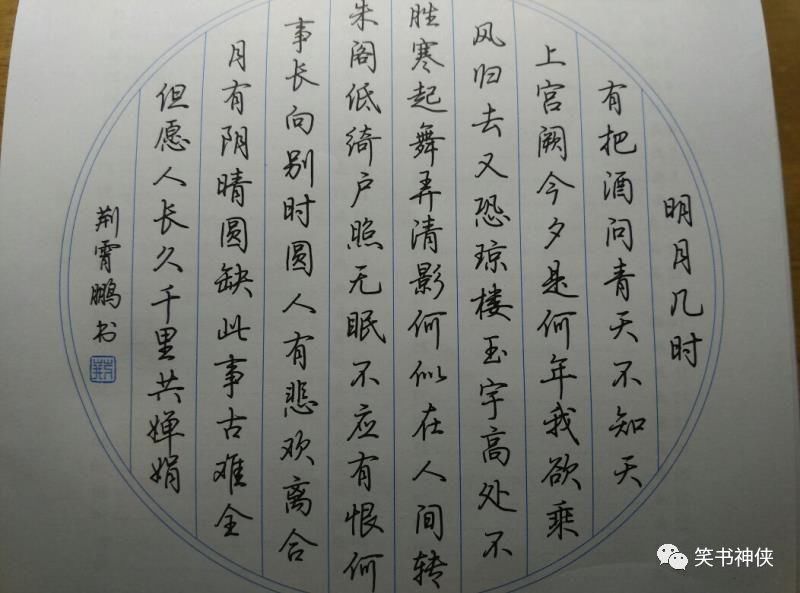 明月几时
有把酒问青天不知天
上宫阙今夕是何年我欲乘
风归去又恐琼楼玉宇高处不
胜寒起舞弄清影何似在人间转
朱阁低绮户照无眠不应有恨何
事长向别时圆人有悲欢离合
月有阴晴圆缺此事古难全
但愿人长久千里共婵娟
荆霄鹏书
笑书神侠